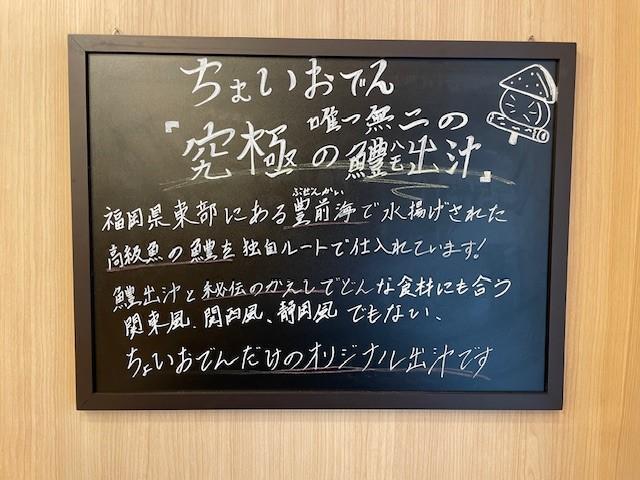 ちょいおでん
唯一無二の
『究極の鱧出汁』
ハモ
ぶぜんかい
福岡県東部にある豊前海で水揚げされた
高級魚の鱧を独自ルートで仕入れています!
鱧出汁と秘伝のかえしでどんな食材にも合う
関東風、関西風、静岡風でもない、
ちょいおでんだけのオリジナル出汁です